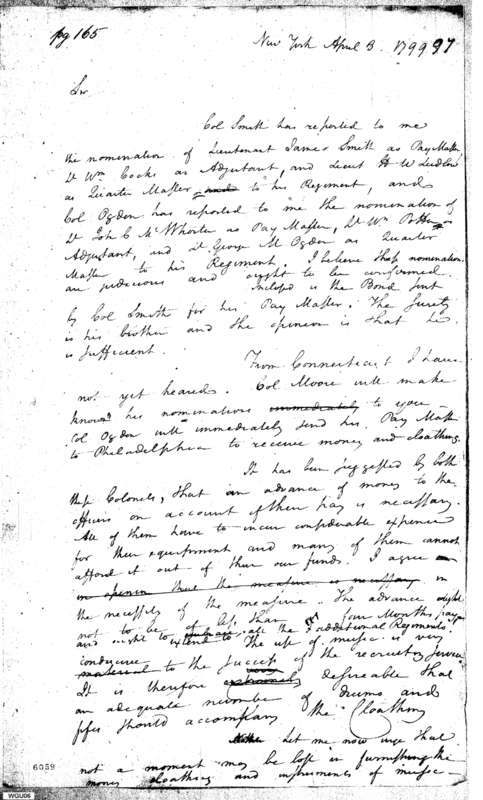 pg 165
New York April 3. 1799 97
Sir
Col Smith has reported to me
the nomination of Lieutenant James Smith as Pay Master
Lt Wm Cocks as Adjutant, and Lieut H W Ludlow
as Quarter Master and to his Regiment, and
Col Ogden has reported to me the nomination of
Lt Joh C Mc Whorter as Pay Master, Lt Wm Potter as
Adjutant, and Lt George M Ogden as Quarter
Master to his Regiment. I believe these nomination
are judicious and ought to be confirmed.
Inclosed is the Bond sent
by Col Smith for his Pay Master. The Surety
is his brother and the opinion is that he
is sufficient.
From Connecticut I have
not yet heared. Col Moore will make
known his nominations immediately to you
Col Ogden will immediately send his Pay Master
to Philadelphia to receive money and cloathing.
It has been suggested by both
these Colonels, that an advance of money to the
officers on account of their pay is necessary.
All of them have to incur considerable expence
for their equipment and many of them cannot
afford it out of their own funds. I agree
in opinion that the measure is necessary in
the necessity of the measure. The advance ought
not to be of less than four Months pay
and ought to extend to all the additional Regiments.
The use of music is very
conducive
material to the success of the recruiting service
It is therefore extremely desireable that
an adequate number of drums and
fifes should accompany the Cloathing
Let me now urge that
not a moment may be lost in furnishing the
money cloathing and instruments of music
6059
WGU06